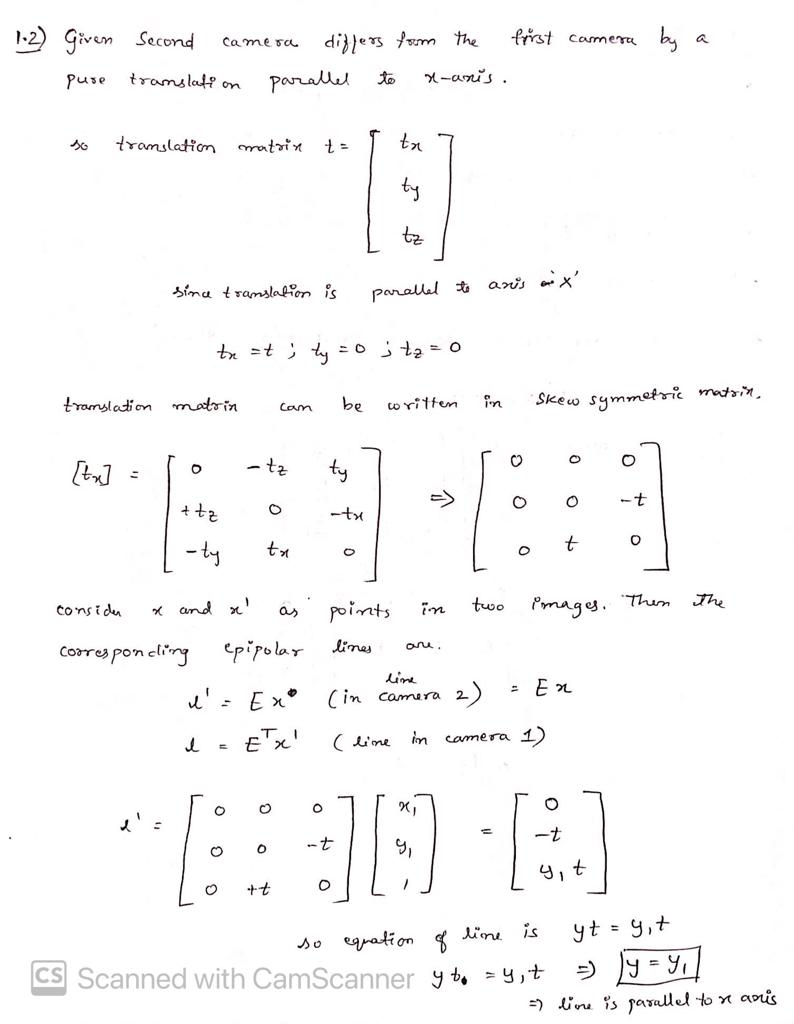 1.2) Given Second camera differs from the first camera by a
pure translation parallel to x-axis.
so translation matrix t = [ tx
ty
tz ]
since translation is parallel to axis x'
tx = t ; ty = 0 ; tz = 0
translation matrix can be written in skew symmetric matrix.
[tx] = [ 0 -tz ty ⇒ [ 0 0 0
+tz 0 -tx 0 0 -t
-ty tx 0 ] 0 t 0 ]
consider x and x' as points in two images. Then the
corresponding epipolar lines are.
l' = Ex (in line camera 2) = Ex
l = Eᵀx' (line in camera 1)
l' = [ 0 0 0 [ x₁ = [ 0
0 0 -t y₁ -t
0 +t 0 ] 1 ] y₁t ]
so equation of line is yt = y₁t
CS Scanned with CamScanner yt = y₁t ⇒ y = y₁
⇒ line is parallel to x axis